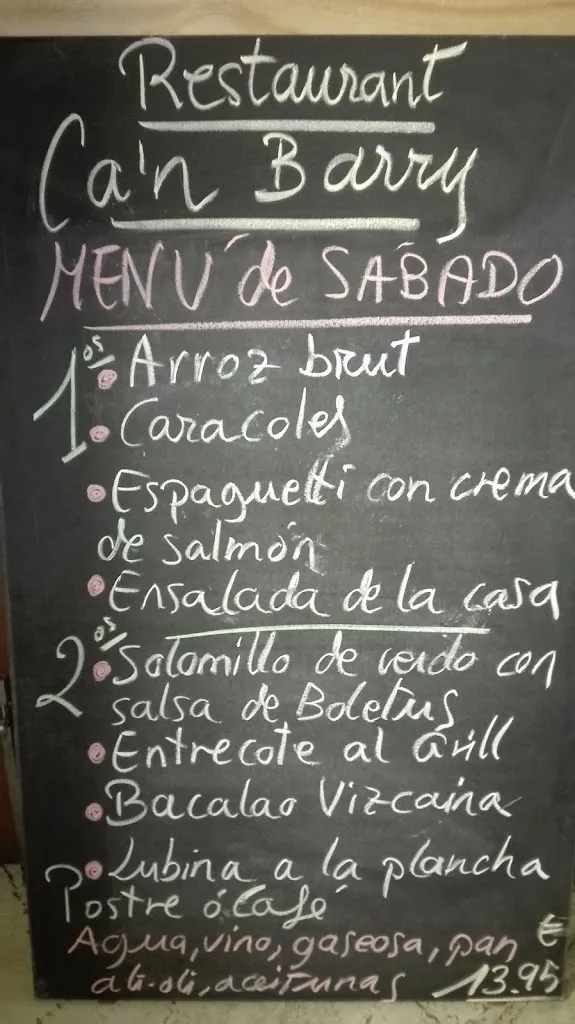 Restaurant
Ca'n Barry
MENÚ de SÁBADO
1os • Arroz brut
• Caracoles
• Espaguetti con crema
de salmón
• Ensalada de la casa
2os • Solomillo de verdo con
salsa de Boletus
• Entrecote al Grill
• Bacalao Vizcaina
• Lubina a la plancha
Postre ó Café
Agua, vino, gaseosa, pan
ali-oli, aceitunas 13.95 €